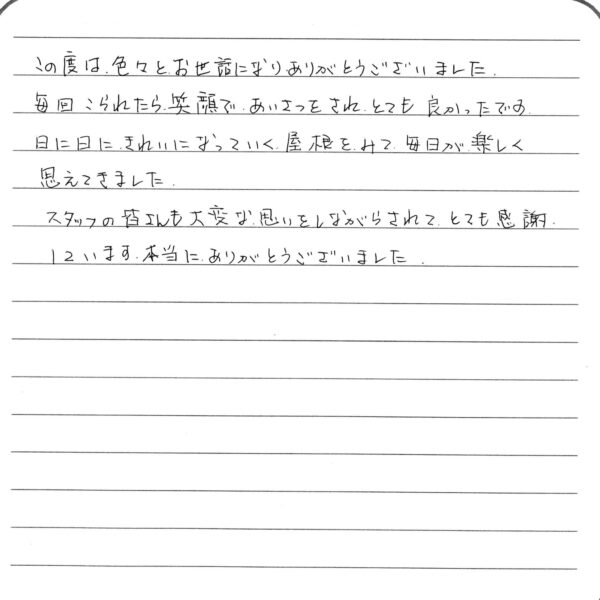 この度は、色々と、お世話になりありがとうございました。
毎回こられたら、笑顔で、あいさつをされ、とても良かったです。
日に日に、きれいになっていく、屋根を、みて、毎日が、楽しく
思えてきました。
スタッフの皆さんも大変な、思いをしながらされて、とても感謝
しています。本当に、ありがとうございました。